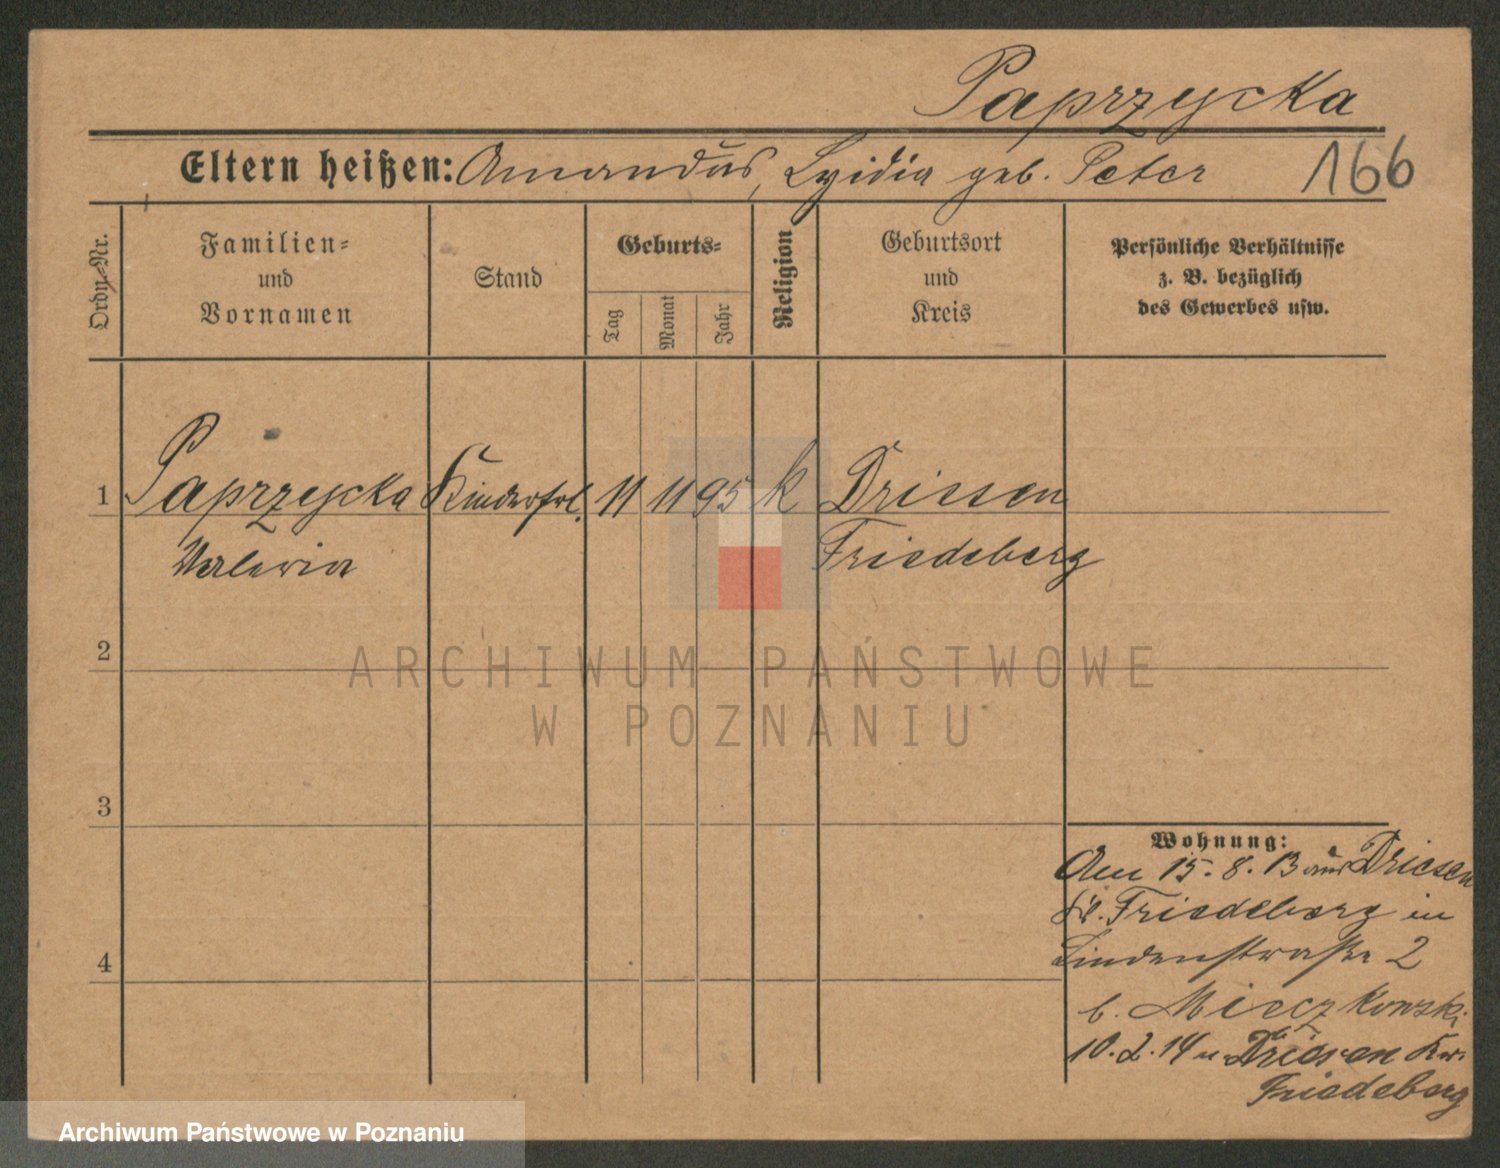 Paprzycka
Eltern heißen: Amandus, Lyidia geb. Peter 166
Ordn.-Nr.
Familien-
und
Vornamen
Stand
Geburts-
Tag
Monat
Jahr
Religion
Geburtsort
und
Kreis
Persönliche Verhältnisse
z. B. bezüglich
des Gewerbes usw.
1 Paprzycka Kinderfrl. 11 11 95 k Driesen
Valeria Friedeberg
2
ARCHIWUM PAŃSTWOWE
W POZNANIU
3
Wohnung:
Am 15.8.13 aus Driesen
Kr. Friedeberg in
Lindenstraße 2
4
b. Mieczkowski
10.2.14 n. Driesen Kr.
Friedeberg
Archiwum Państwowe w Poznaniu